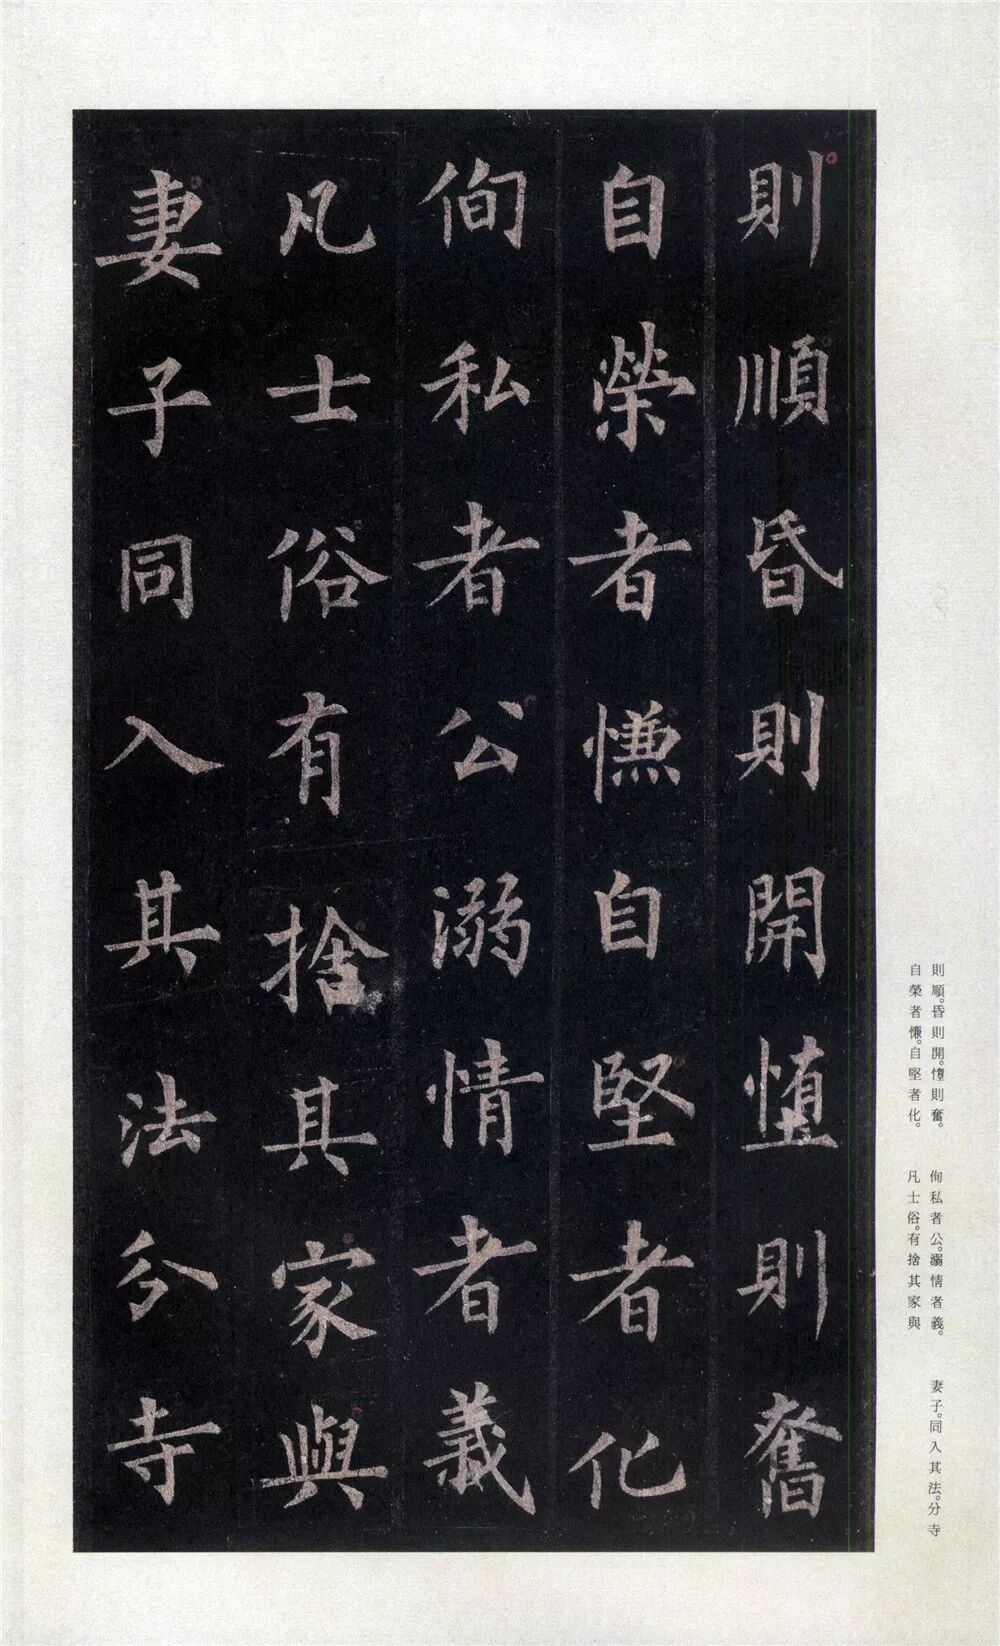 則順昏則開墯則奮
自榮者慊自堅者化
侚私者公溺情者義
凡士俗有捨其家與
妻子同入其法分寺
則順。昏則開。墯則奮。
自榮者慊。自堅者化。
侚私者公。溺情者義。
凡士俗。有捨其家與
妻子。同入其法。分寺